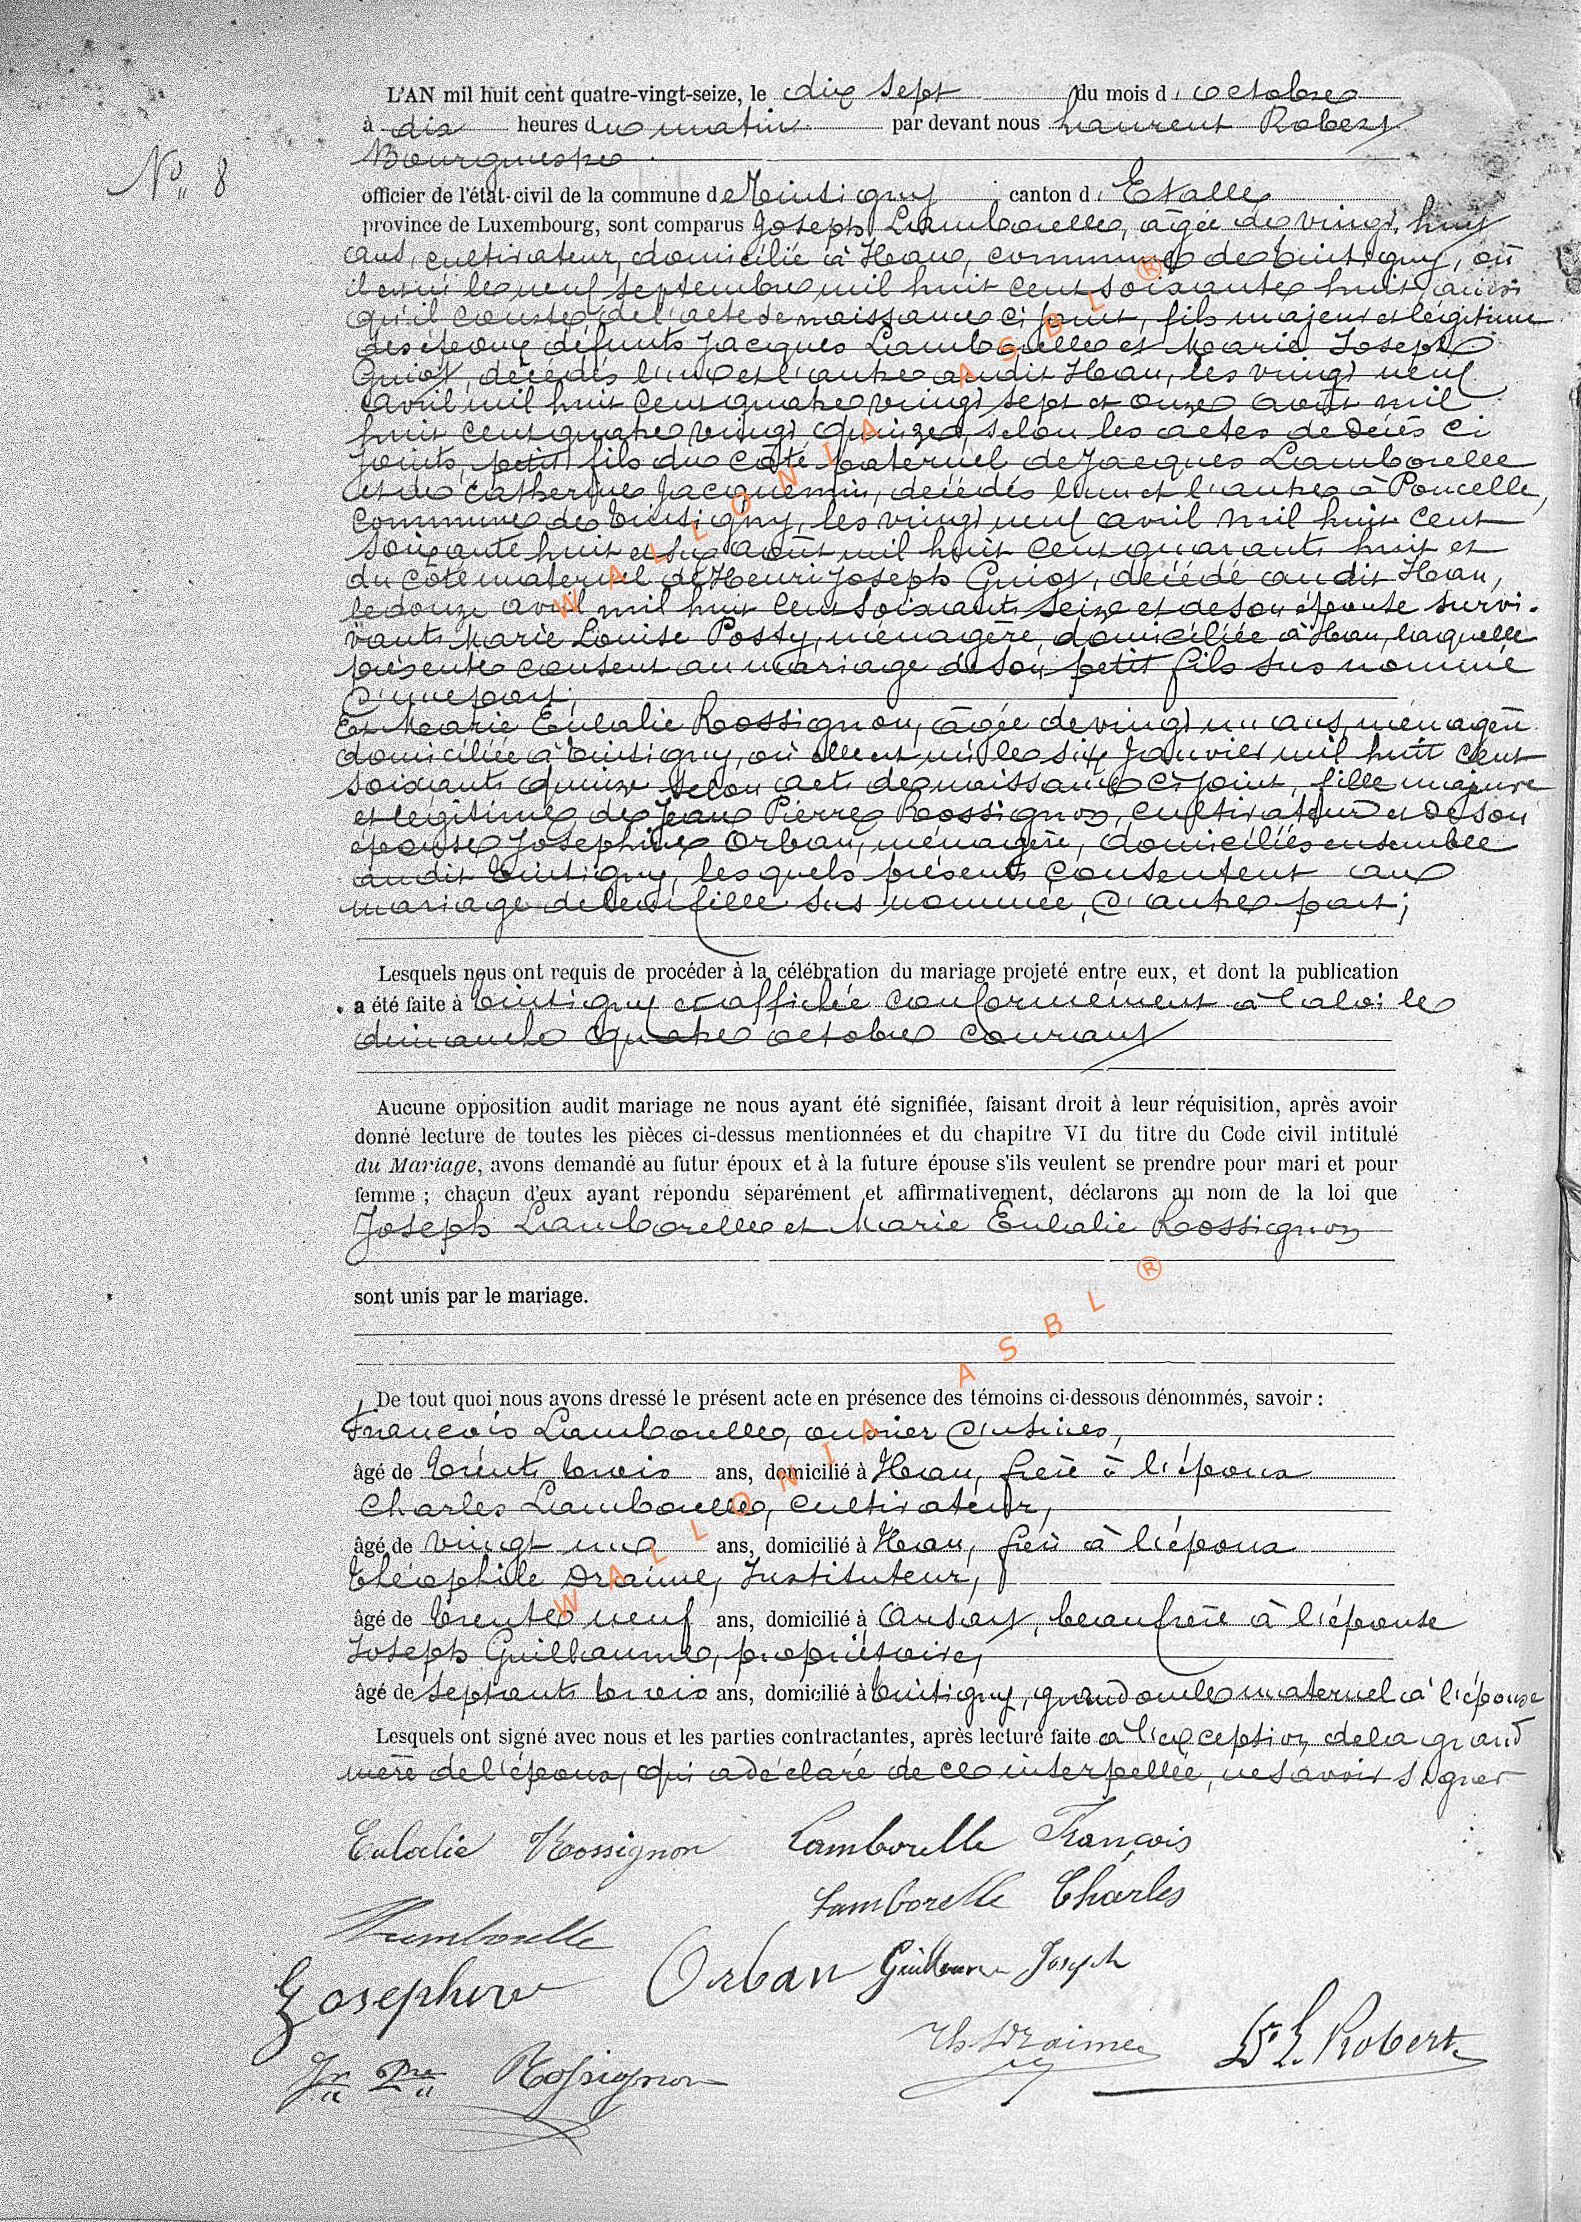 L'AN mil huit cent quatre-vingt-seize, le dix sept du mois d'octobre
à dix heures du matin par devant nous Laurent Robert
Bourgmestre
N° 8
officier de l'état-civil de la commune de Tintigny canton d'Etalle
province de Luxembourg, sont comparus Joseph Lamborelle, âgée de vingt huit
ans, cultivateur, domicilié à Han, commune de Tintigny, où
il est né le neuf septembre mil huit cent soixante huit, ainsi
qu'il conste de l'acte de naissance ci joint, fils majeur et légitime
des époux défunts Jacques Lamborelle et Marie Joseph
Guiot, décédés l'un et l'autre audit Han, les vingt neuf
avril mil huit cent quatre vingt sept et onze août mil
huit cent quatre vingt quinze, selon les actes de décès ci
joints, petit fils du côté paternel de Jacques Lamborelle
et de Catherine Jacquemin, décédés l'un et l'autre à Poncelle,
commune de Tintigny, les vingt neuf avril mil huit cent
soixante huit et six août mil huit cent quarante huit et
du côté maternel de Henri Joseph Guiot, décédé audit Han,
le douze avril mil huit cent soixante seize et de son épouse survi-
vante Marie Louise Possy, ménagère, domiciliée à Han, laquelle
présente consent au mariage de son petit fils sus nommé
d'une part;
Et Marie Eulalie Rossignon, âgée de vingt un ans, ménagère
domiciliée à Tintigny, où elle est née le six janvier mil huit cent
soixante quinze selon acte de naissance ci joint, fille majeure
et légitime de Jean Pierre Rossignon, cultivateur et de son
épouse Josephine Orban, ménagère, domiciliés ensemble
audit Tintigny, lesquels présents consentent au
mariage de leur fille sus nommée, d'autre part;
Lesquels nous ont requis de procéder à la célébration du mariage projeté entre eux, et dont la publication
a été faite à Tintigny et affichée conformément à la loi le
dimanche quatre octobre courant
Aucune opposition audit mariage ne nous ayant été signifiée, faisant droit à leur réquisition, après avoir
donné lecture de toutes les pièces ci-dessus mentionnées et du chapitre VI du titre du Code civil intitulé
du Mariage, avons demandé au futur époux et à la future épouse s'ils veulent se prendre pour mari et pour
femme ; chacun d'eux ayant répondu séparément et affirmativement, déclarons au nom de la loi que
Joseph Lamborelle et Marie Eulalie Rossignon
sont unis par le mariage.
De tout quoi nous avons dressé le présent acte en présence des témoins ci-dessous dénommés, savoir :
François Lamborelle, ouvrier d'usines,
âgé de trente trois ans, domicilié à Han, frère à l'époux
Charles Lamborelle, cultivateur,
âgé de vingt un ans, domicilié à Han, frère à l'époux
Théophile Draime, Instituteur,
âgé de trente neuf ans, domicilié à Ansart, beaufrère à l'épouse
Joseph Guillaume, propriétaire,
âgé de septante trois ans, domicilié à Tintigny, grand oncle maternel à l'épouse
Lesquels ont signé avec nous et les parties contractantes, après lecture faite à l'exception de la grand
mère de l'époux, qui a déclaré de ce interpellée, ne savoir signer
Eulalie Rossignon Lamborelle François
Lamborelle Charles
Lamborelle
Josephine Orban Guillaume Joseph
Th. Draime Dr L. Robert
Jn Pre Rossignon
WALLONIA ASBL ®
WALLONIA ASBL ®